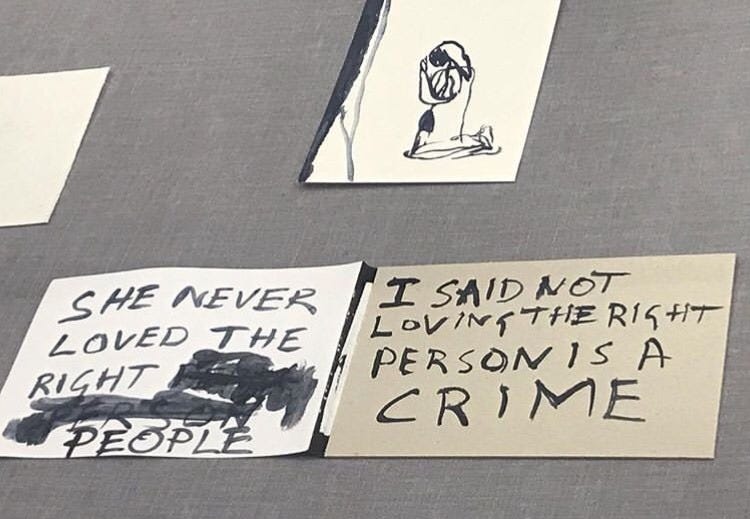 SHE NEVER
LOVED THE
RIGHT
PERSON
PEOPLE
I SAID NOT
LOVING THE RIGHT
PERSON IS A
CRIME